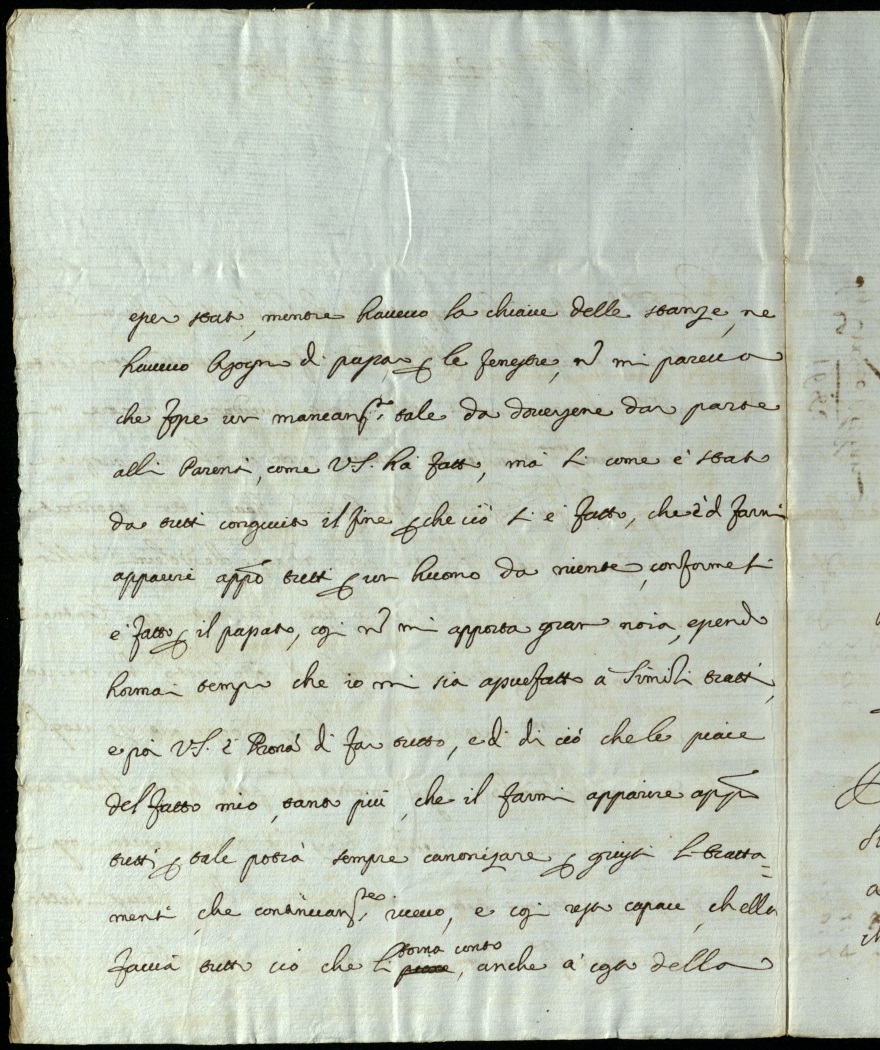 esser stato, mentre havevo la chiave delle stanze, ne
havevo bisogno di passar p le fenestre, nõ mi pareva
che fosse un mancamto tale da doversene dar parte
alli Parenti, come V.S. hà fatto, mà si come è stato
da tutti conosciuto il fine p che ciò si è fatto, che è d farmi
apparire appo tutti p un huomo da niente, conforme si
è fatto p il passato, così nõ mi apporta gran noia, essendo
hormai tempo che io mi sia assuefatto à simili tratti,
e poi V.S. è Prona di far tutto, e di di ciò che le piace
del fatto mio, tanto più, che il farmi apparire appo
tutti p tale potrà sempre canonizare p giusti li tratta=
menti, che continuamte ricevo, e così resto capace, ch ella
faccia tutto ciò che li torna conto, anche à costo della